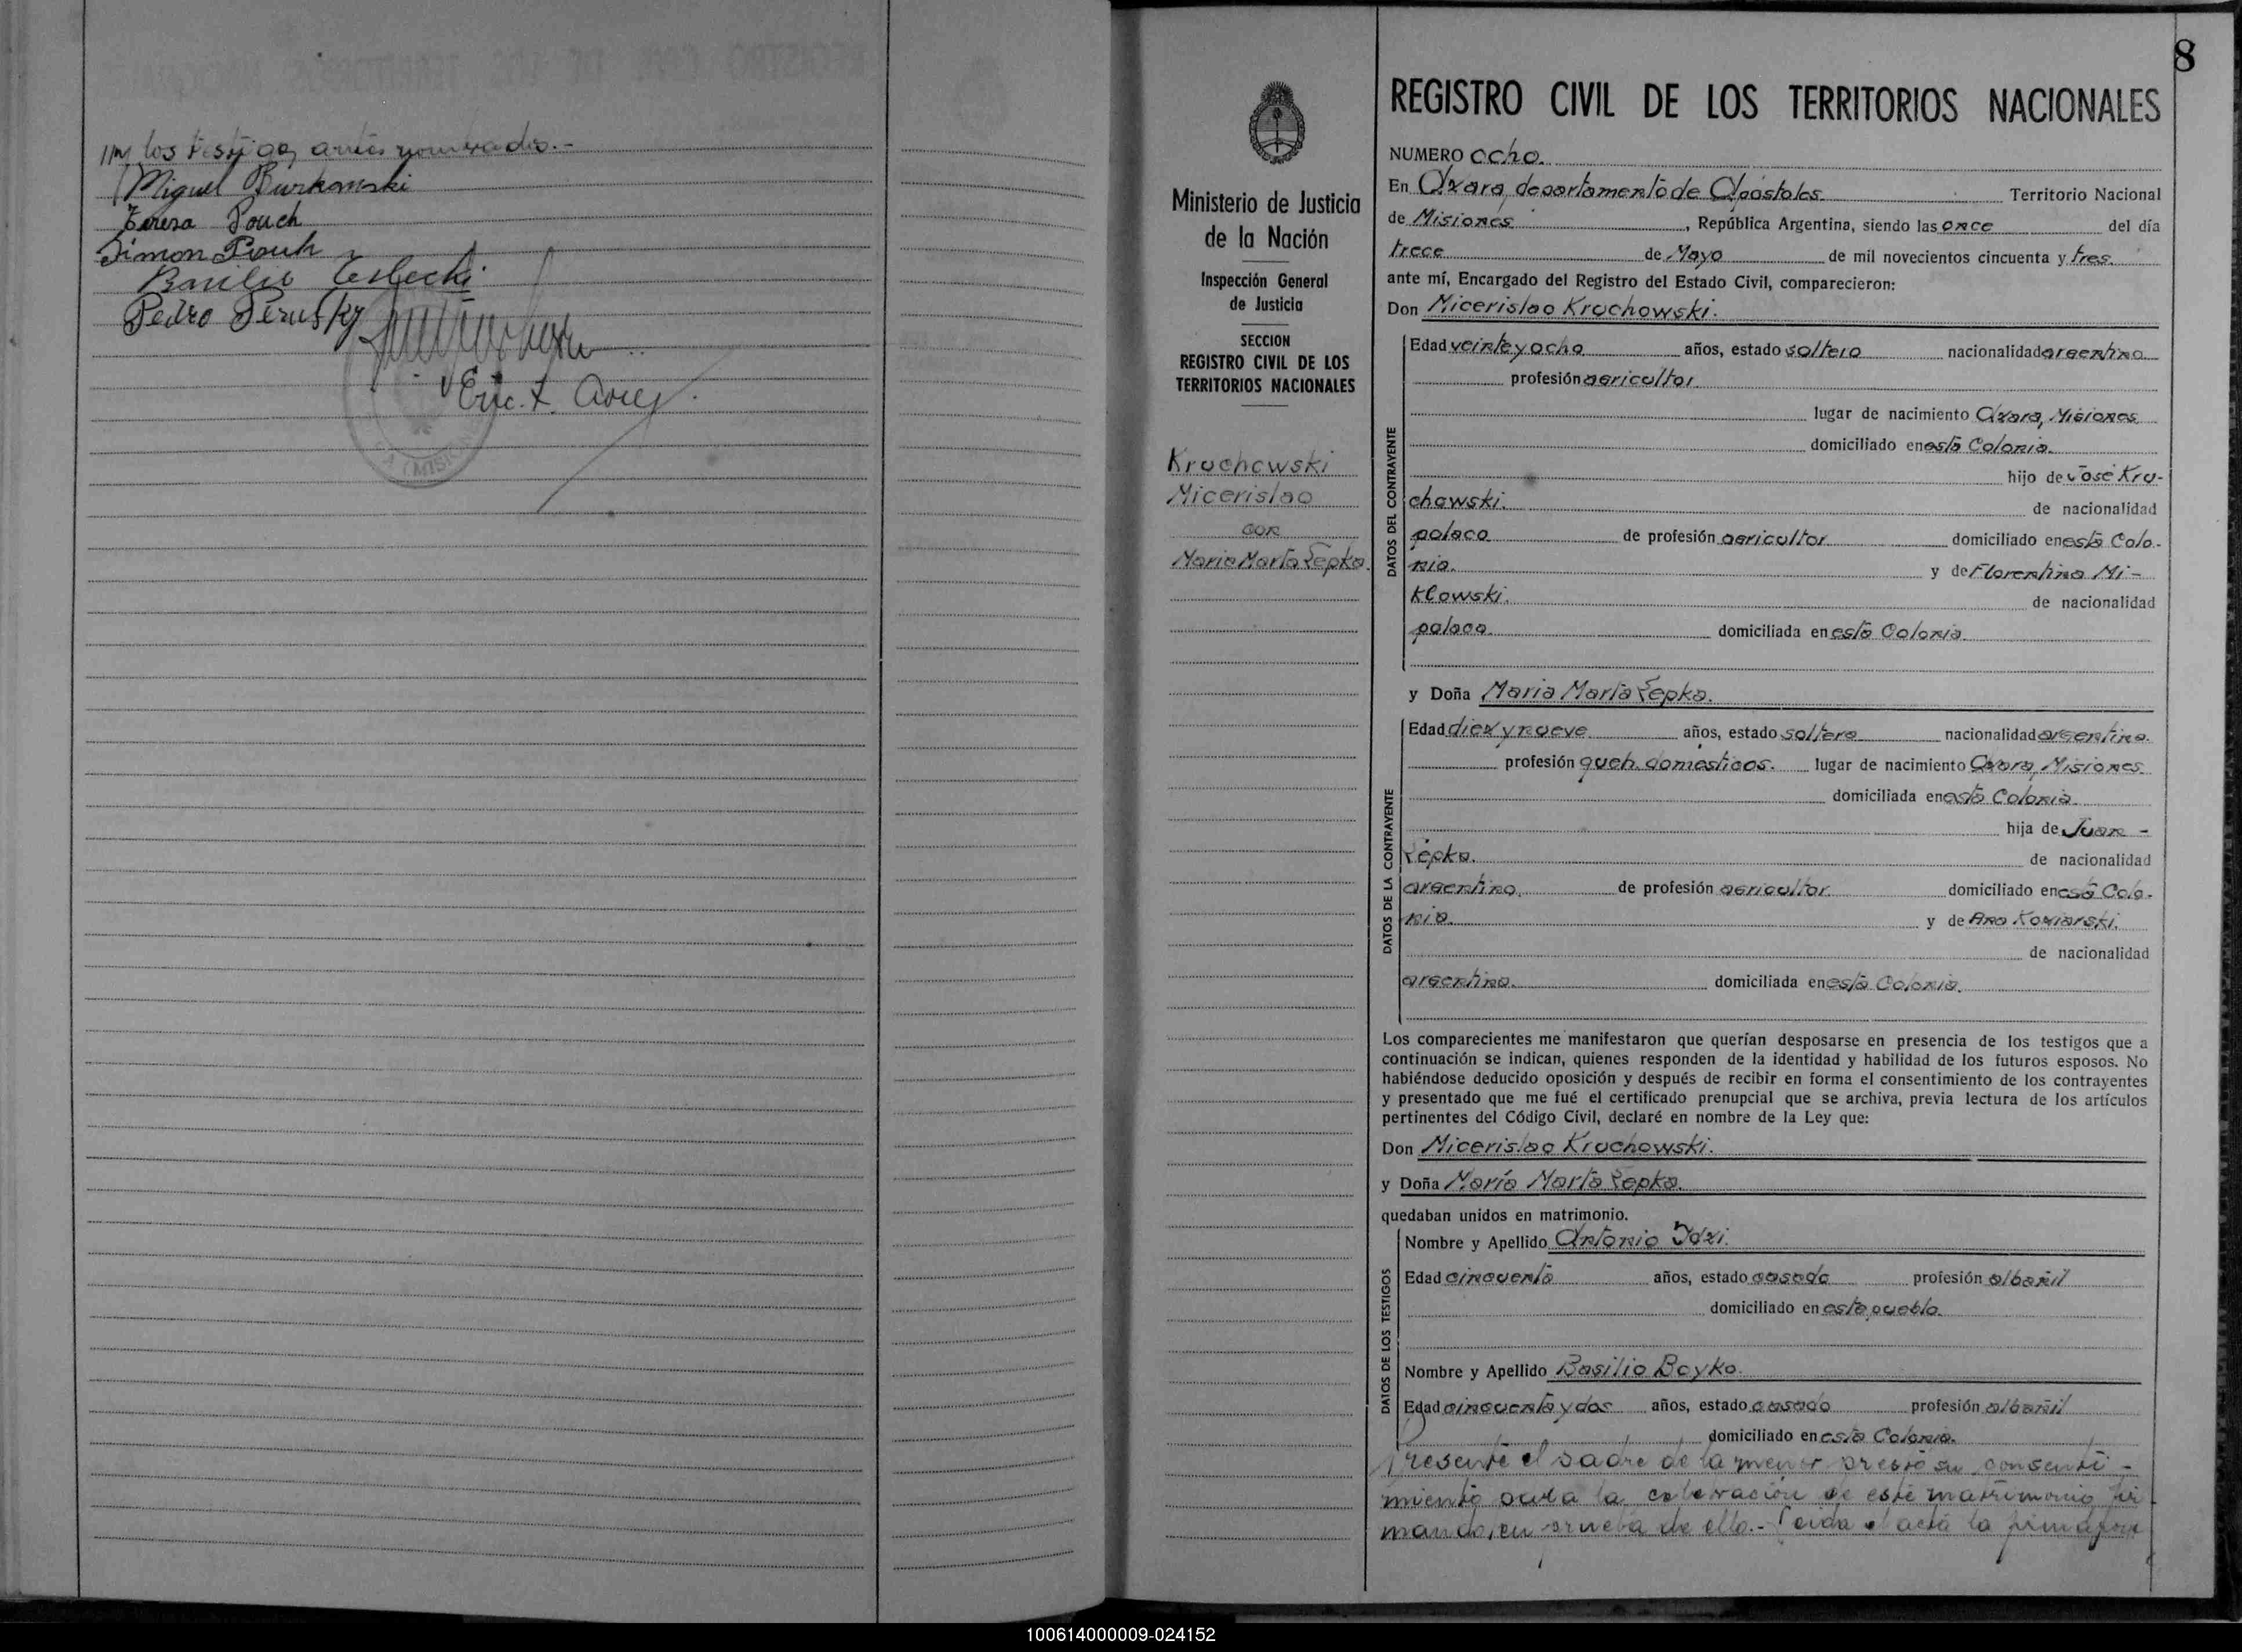 los testigos antes nombrados.-
Miguel Burkowski
Teresa Pouch
Simon Pouch
Basilio
Pedro
Enc. t.
8
REGISTRO CIVIL DE LOS TERRITORIOS NACIONALES
NUMERO ocho.
En Azara, departamento de Apóstoles Territorio Nacional
de Misiones, República Argentina, siendo las once del día
trece de Mayo de mil novecientos cincuenta y tres.
ante mí, Encargado del Registro del Estado Civil, comparecieron:
Don Micerislao Kruchowski.
Ministerio de Justicia
de la Nación
Inspección General
de Justicia
SECCION
REGISTRO CIVIL DE LOS
TERRITORIOS NACIONALES
Kruchowski
Micerislao
con
Maria Marta Repka.
DATOS DEL CONTRAYENTE
Edad veinte y ocho años, estado soltero nacionalidad argentina
profesión agricultor
lugar de nacimiento Azara, Misiones
domiciliado en esta Colonia.
hijo de José Kru-
chowski. de nacionalidad
polaco de profesión agricultor domiciliado en esta Colo-
nia. y de Florentina Mi-
klowski. de nacionalidad
polaca. domiciliada en esta Colonia.
y Doña Maria Marta Repka.
DATOS DE LA CONTRAYENTE
Edad diez y nueve años, estado soltera nacionalidad argentina.
profesión queh. domesticos. lugar de nacimiento Azara, Misiones.
domiciliada en esta Colonia.
hija de Juan -
Repka. de nacionalidad
argentino. de profesión agricultor. domiciliado en esta Colo-
nia. y de Ana Koziarski.
de nacionalidad
argentina. domiciliada en esta Colonia.
Los comparecientes me manifestaron que querían desposarse en presencia de los testigos que a
continuación se indican, quienes responden de la identidad y habilidad de los futuros esposos. No
habiéndose deducido oposición y después de recibir en forma el consentimiento de los contrayentes
y presentado que me fué el certificado prenupcial que se archiva, previa lectura de los artículos
pertinentes del Código Civil, declaré en nombre de la Ley que:
Don Micerislao Kruchowski.
y Doña María Marta Repka.
quedaban unidos en matrimonio.
DATOS DE LOS TESTIGOS
Nombre y Apellido Antonio Idzi.
Edad cincuenta años, estado casado profesión albañil
domiciliado en este pueblo.
Nombre y Apellido Basilio Boyko.
Edad cincuenta y dos años, estado casado profesión albañil
domiciliado en esta Colonia.
Presente el padre de la menor prestó su consenti-
miento para la celebración de este matrimonio fir
mando, en prueba de ello.- Leida el acta la
100614000009-024152